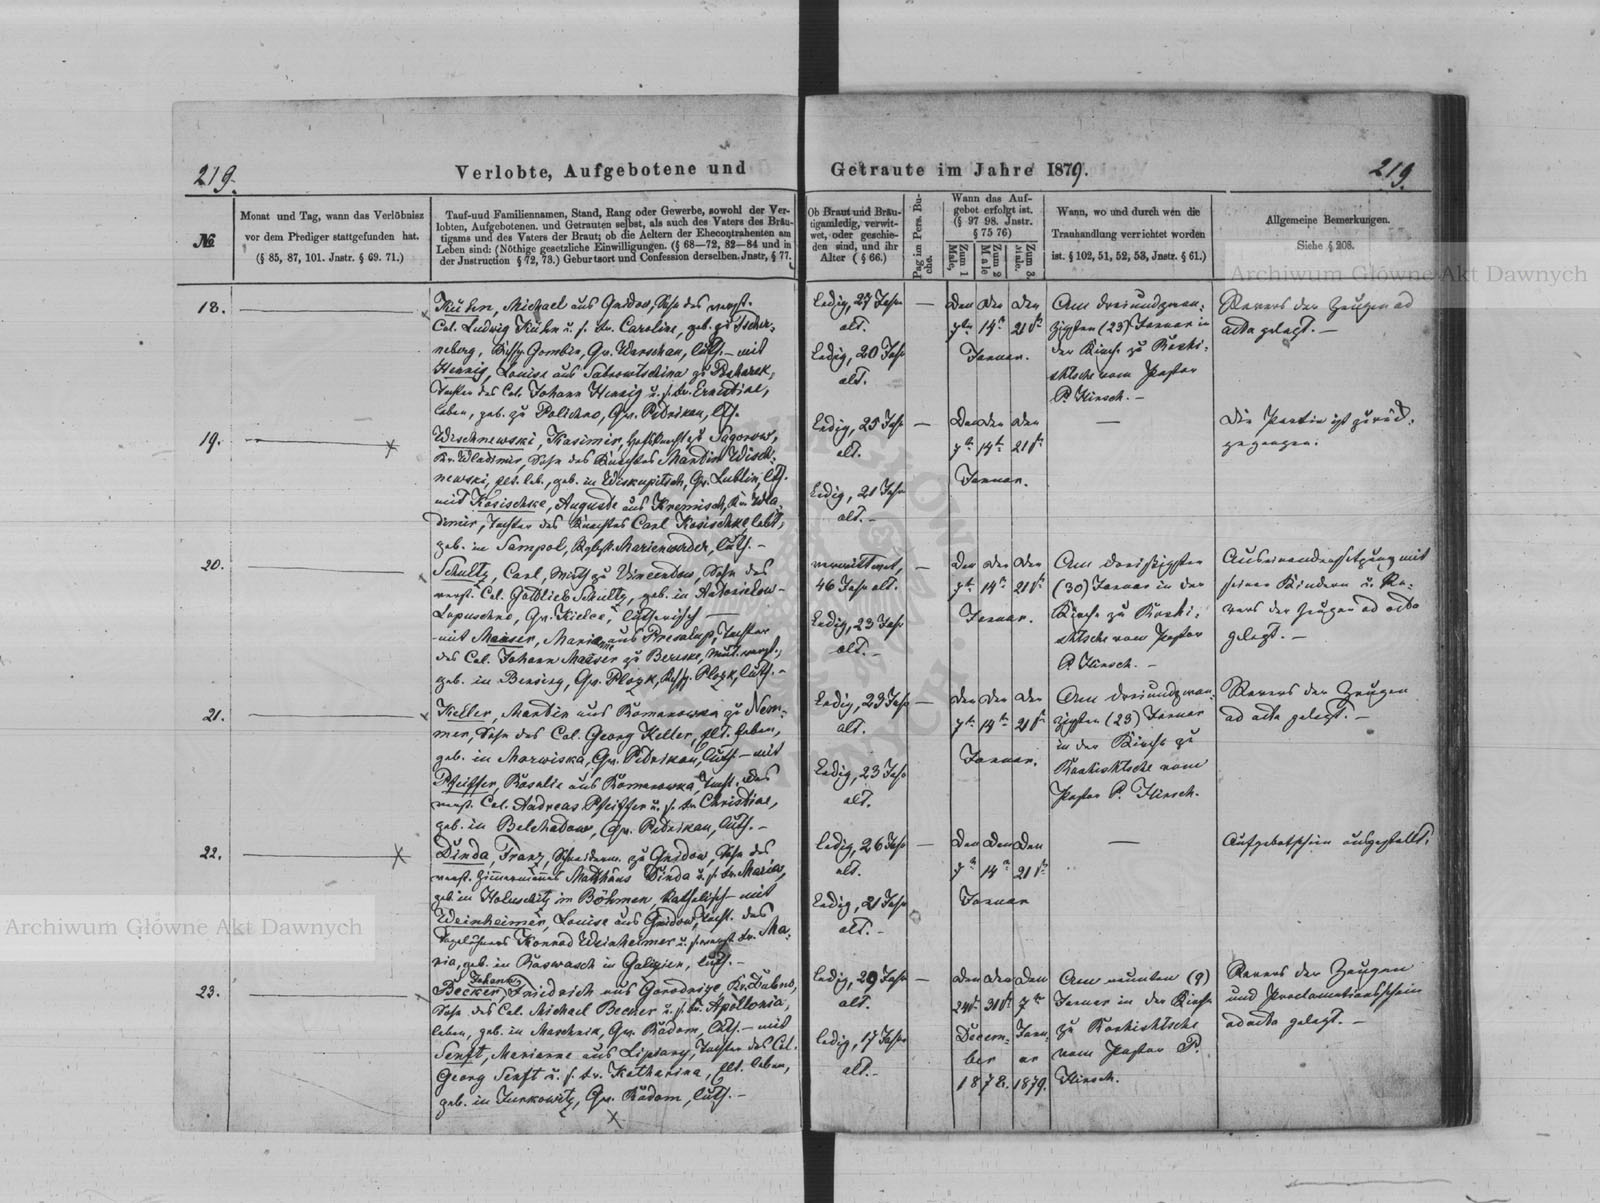 219.
Verlobte, Aufgebotene und
Getraute im Jahre 1879.
219.
№
Monat und Tag, wann das Verlöbnisz
vor dem Prediger stattgefunden hat.
(§ 85, 87, 101. Jnstr. § 69. 71.)
Tauf-und Familiennamen, Stand, Rang oder Gewerbe, sowohl der Ver-
lobten, Aufgebotenen. und Getrauten selbst, als auch des Vaters des Bräu-
tigams und des Vaters der Braut; ob die Aeltern der Ehecontrahenten am
Leben sind: (Nöthige gesetzliche Einwilligungen. (§ 68—72, 82—84 und in
der Jnstruction § 72, 73.) Geburtsort und Confession derselben. Jnstr, § 77.
Ob Braut und Bräu-
tigam ledig, verwit-
wet, oder geschie-
den sind, und ihr
Alter (§ 66.)
Pag im Pers. Bu-
che.
Wann das Auf-
gebot erfolgt ist.
(§ 97 98. Jnstr.
§ 75 76)
Zum 1 Male.
Zum 2 Male
Zum 3. Male.
Wann, wo und durch wen die
Trauhandlung verrichtet worden
ist. § 102, 51, 52, 53, Jnstr. § 61.)
Allgemeine Bemerkungen.
Siehe § 208.
18.
Kühn, Michael aus Gnidow, Sohn des verst.
Col. Ludwig Kühn u. s. Fr. Caroline, geb. zu Tscher-
neberg, Gombin, Gv. Warschau, luth. — mit
Hennig, Louise aus
Tochter des Col. Johann Hennig u. s. Fr. Ernestine,
leben, geb. zu Polichno, Gv. Petrikau, luth.
Ledig, 27 Jahr
alt.
Ledig, 20 Jahr
alt.
—
den den den
7ten 14n 21st
Januar.
Am dreiundzwan-
zigsten (23) Januar in
der Kirche zu Roshi-
schtsche vom Pastor
P. Kirsch. —
Revers der Zeugen ad
acta gelegt. —
19.
Wischnewski, Kasimir, zu Sagorow,
Kr. Wladimir, Sohn des Knechtes Martin Wisch-
newski, Elt. leb., geb. in Wiskupitsch, Gv. Lublin, luth.
mit Kosischke, Auguste aus Kremisch, Kr. Wla-
dimir, Tochter des Knechtes Carl Kosischke, lebt,
geb. in Sampol, Rgbzk. Marienwerder, luth. —
Ledig, 25 Jahr
alt.
Ledig, 21 Jahr
alt. —
—
Den den den
7n 14n 21st
Januar.
—
Die Partie ist zurück-
gegangen.
20.
Schultz, Carl, zu Vincentow, Sohn des
verst. Col. Gottlieb Schultz, geb. in Antonielow-
Lopuschno, Gv. Kielce, lutherisch —
mit Mauser, Marianne aus Tochter
des Col. Johann Mauser zu Bereske, Mutt. verst.,
geb. in Gv. Plozk, Plozk, luth. —
verwittwet,
46 Jahr alt.
Ledig, 23 Jahr
alt. —
—
den den den
7n 14n 21st
Januar.
Am dreißigsten
(30) Januar in der
Kirche zu Roshi-
schtsche vom Pastor
P. Kirsch. —
Auseinandersetzung mit
seinen Kindern u. Re-
vers der Zeugen ad acta
gelegt. —
21.
Keller, Martin aus Romanowka zu Nem-
mer, Sohn des Col. Georg Keller, Elt. leben,
geb. in Morwiska, Gv. Petrikau, luth. — mit
Pfeiffer, Rosalie aus Romanowka, Tocht. des
verst. Col. Andreas Pfeiffer u. s. Fr. Christine,
geb. in Belchadow, Gv. Petrikau, luth. —
Ledig, 23 Jahr
alt.
Ledig, 23 Jahr
alt.
—
den den den
7n 14n 21st
Januar.
Am dreiundzwan-
zigsten (23) Januar
in der Kirche zu
Roshischtsche vom
Pastor P. Kirsch.
Revers der Zeugen
ad acta gelegt. —
22.
Dinda, Franz, zu Gnidow, Sohn des
verst. Zimmermannes Matthäus Dinda u. s. Fr. Maria,
geb. in in Böhmen, katholisch — mit
Weinheimer, Louise aus Gnidow, Tocht. des
Tagelöhners Konrad Weinheimer u. s. verst. Fr. Ma-
ria, geb. in Raswasch in Galizien, luth. —
Ledig, 26 Jahr
alt.
Ledig, 21 Jahr
alt. —
—
Den Den Den
7n 14n 21st
Januar
—
Aufgebotschein ausgestellt.
23.
Johann
Becker, Friedrich aus Gorodnize, Kr. Dubno,
Sohn des Col. Michael Becker u. s. Fr. Apollonia,
leben, geb. in Maschnik, Gv. Radom, luth. — mit
Senft, Marianne aus Lipsary, Tochter des Col.
Georg Senft u. s. Fr. Katharina, Elt. leben,
geb. in Jankowitz, Gv. Radom, luth. —
Ledig, 29 Jahr
alt.
Ledig, 17 Jahr
alt. —
—
den den Den
24st 31st 7n
Decem- Janu-
ber ar
1878. 1879.
Am neunten (9)
Januar in der Kirche
zu Roshischtsche
vom Pastor P.
Kirsch.
Revers der Zeugen
und Proclamationsschein
ad acta gelegt. —
Archiwum Główne Akt Dawnych
Archiwum Główne Akt Dawnych